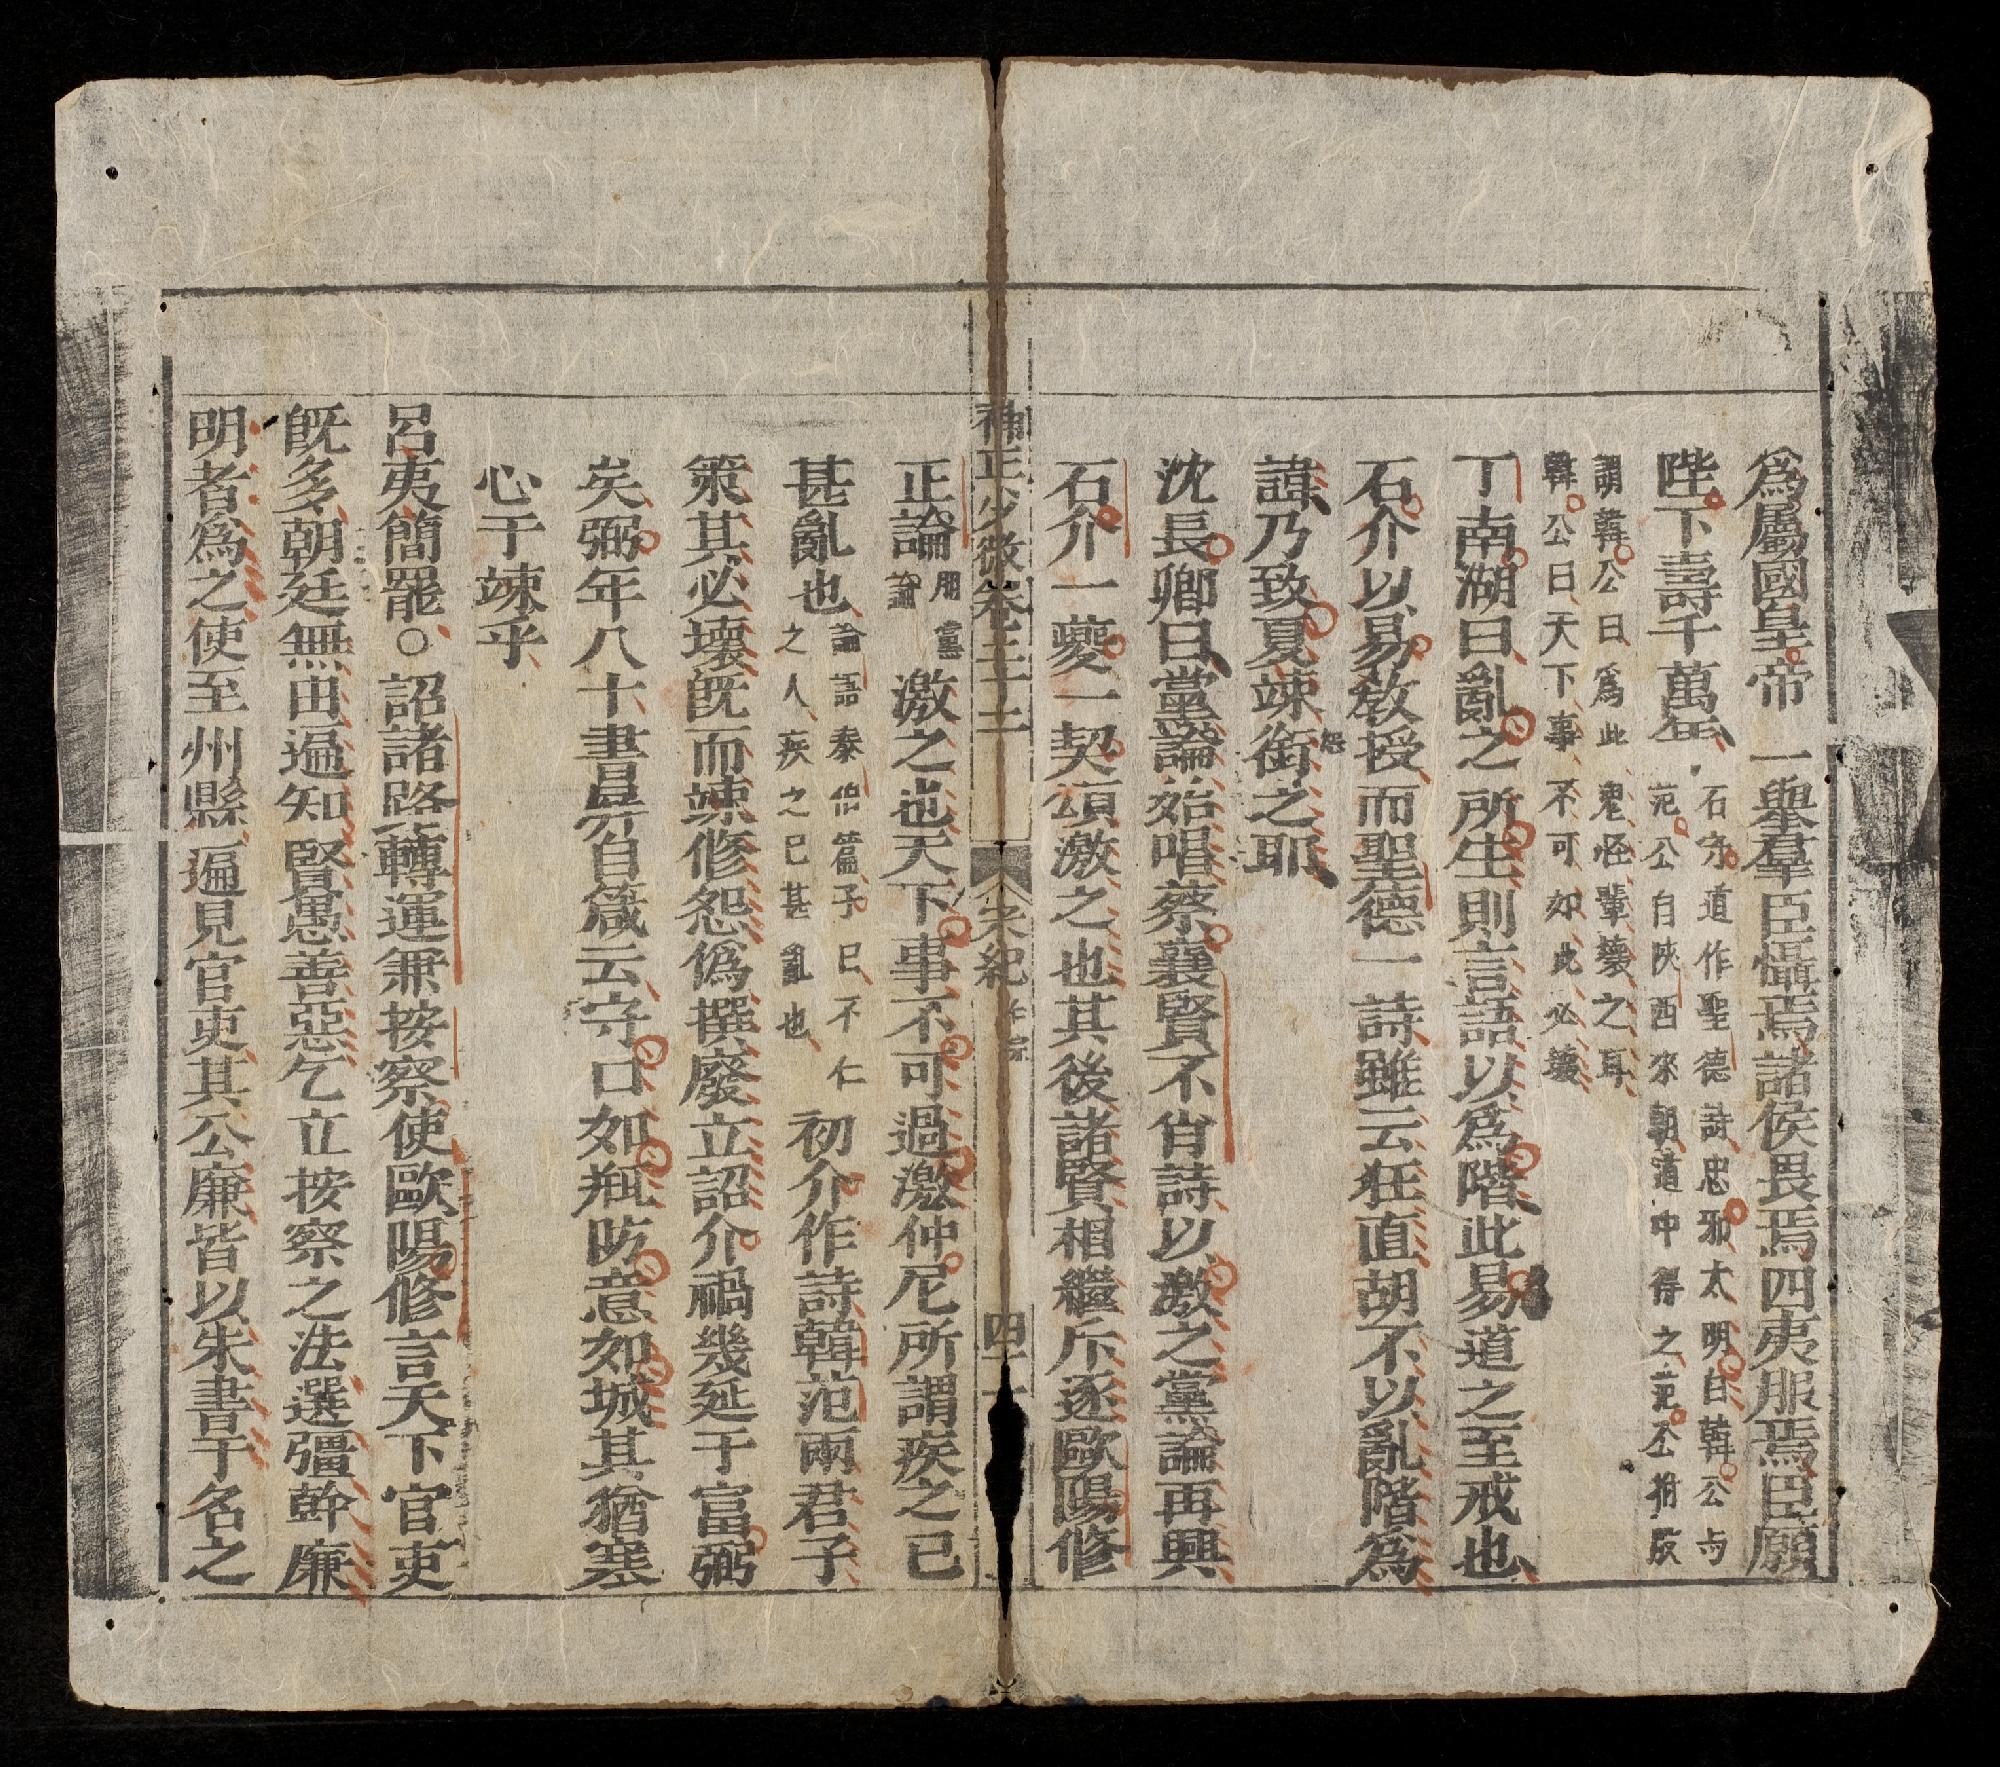 爲屬國皇帝一舉羣臣懾焉諸侯畏焉四夷服焉臣願
陛下壽千萬年石守道作聖德詩忠邪太明白韓公与
范公自陝西來朝道中得之范公拊股
謂韓公曰爲此鬼怪輩壞之耳
韓公曰天下事不可如此必壞
丁南湖曰亂之所生則言語以爲階此易道之至戒也
石介以易教授而聖德一詩雖云狂直胡不以亂階爲
諱乃致夏竦銜怨之耶
沈長卿曰黨論始唱蔡襄賢不肖詩以激之黨論再興
石介一夔一契頌激之也其後諸賢相繼斥逐歐陽修
補正少微卷三十二 宋紀 仁宗 四十
正論朋黨
論激之也天下事不可過激仲尼所謂疾之已
甚亂也論語泰伯篇子曰不仁
之人疾之已甚亂也初介作詩韓范兩君子
策其必壞旣而竦修怨僞撰廢立詔介禍幾延于富弼
矣弼年八十書㞕自箴云守口如瓶防意如城其猶塞
心于竦乎
呂夷簡罷○詔諸路轉運兼按察使歐陽修言天下官吏
旣多朝廷無由遍知賢愚善惡乞立按察之法選彊幹廉
明者爲之使至州縣遍見官吏其公廉皆以朱書于名之